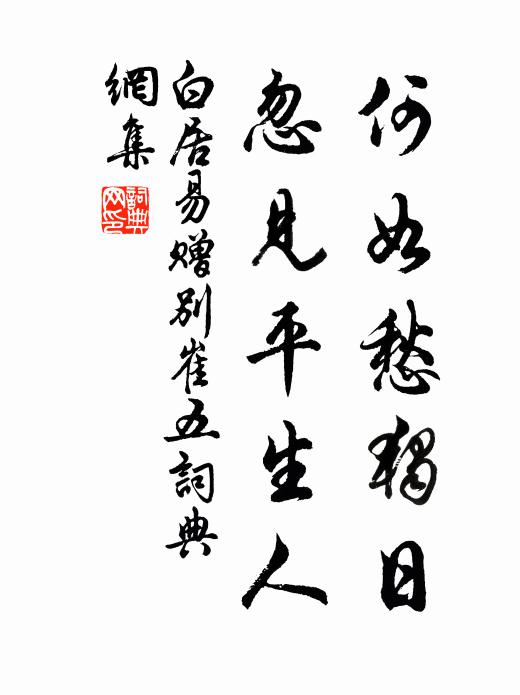 何如愁獨日
忽見平生人
白居易贈別崔五詞典
網集
詞典
网印